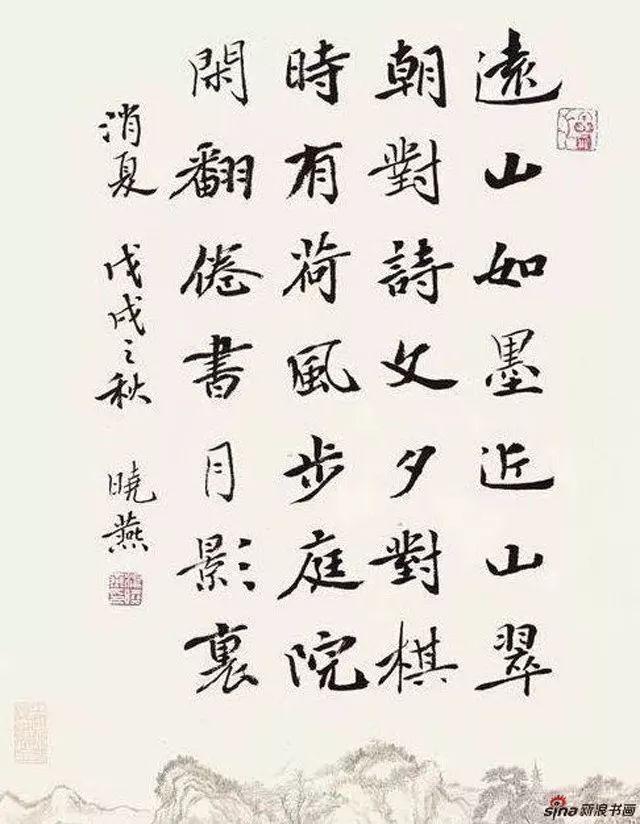 遠山如墨近山翠
朝對詩文夕對棋
時有荷風步庭院
閑翻倦書月影裏
消夏 戊戌之秋 曉燕
sina新浪书画